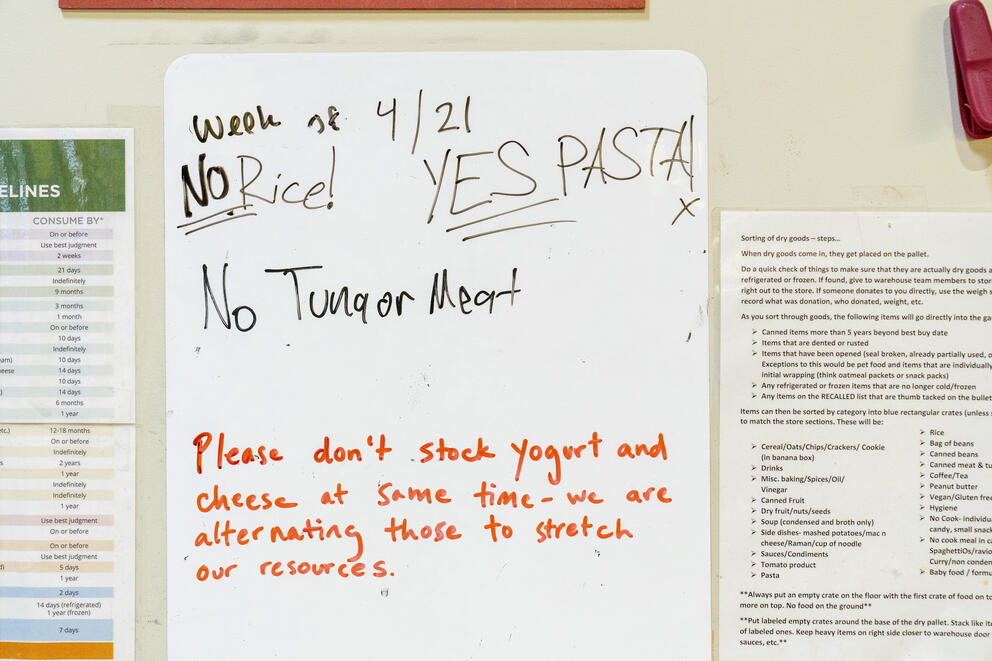 Week of 4/21
NO Rice! YES PASTA!
x
No Tuna or Meat
Please don't stock yogurt and
cheese at same time - we are
alternating those to stretch
our resources.
ELINES
CONSUME BY*
On or before
Use best judgment
2 weeks
21 days
Indefinitely
9 months
3 months
1 month
On or before
10 days
Indefinitely
am) 10 days
eese 14 days
10 days
) 14 days
6 months
1 year
etc.) 12-18 months
On or before
Indefinitely
s 2 years
1 year
Indefinitely
Indefinitely
1 year
Use best judgment
On or before
On or before
Use best judgment
) 5 days
1 year
2 days
14 days (refrigerated)
1 year (frozen)
7 days
Sorting of dry goods – steps...
When dry goods come in, they get placed on the pallet.
Do a quick check of things to make sure that they are actually dry goods a
refrigerated or frozen. If found, give to warehouse team members to stor
right out to the store. If someone donates to you directly, use the weigh s
record what was donation, who donated, weight, etc.
As you sort through goods, the following items will go directly into the ga
➢ Canned items more than 5 years beyond best buy date
➢ Items that are dented or rusted
➢ Items that have been opened (seal broken, already partially used, o
Exceptions to this would be pet food and items that are individually
initial wrapping (think oatmeal packets or snack packs)
➢ Any refrigerated or frozen items that are no longer cold/frozen
➢ Any items on the RECALLED list that are thumb tacked on the bullet
Items can then be sorted by category into blue rectangular crates (unless
to match the store sections. These will be:
➢ Cereal/Oats/Chips/Crackers/ Cookie
(in banana box)
➢ Drinks
➢ Misc. baking/Spices/Oil/
Vinegar
➢ Canned Fruit
➢ Dry fruit/nuts/seeds
➢ Soup (condensed and broth only)
➢ Side dishes- mashed potatoes/mac n
cheese/Raman/cup of noodle
➢ Sauces/Condiments
➢ Tomato product
➢ Pasta
➢ Rice
➢ Bag of beans
➢ Canned beans
➢ Canned meat & tu
➢ Coffee/Tea
➢ Peanut butter
➢ Vegan/Gluten fre
➢ Hygiene
➢ No Cook- individu
candy, small snack
➢ No cook meal in ca
SpaghettiOs/ravio
Curry/non conden
➢ Baby food / formu
**Always put an empty crate on the floor with the first crate of food on to
more on top. No food on the ground**
**Put labeled empty crates around the base of the dry pallet. Stack like ite
of labeled ones. Keep heavy items on right side closer to warehouse door
sauces, etc.**